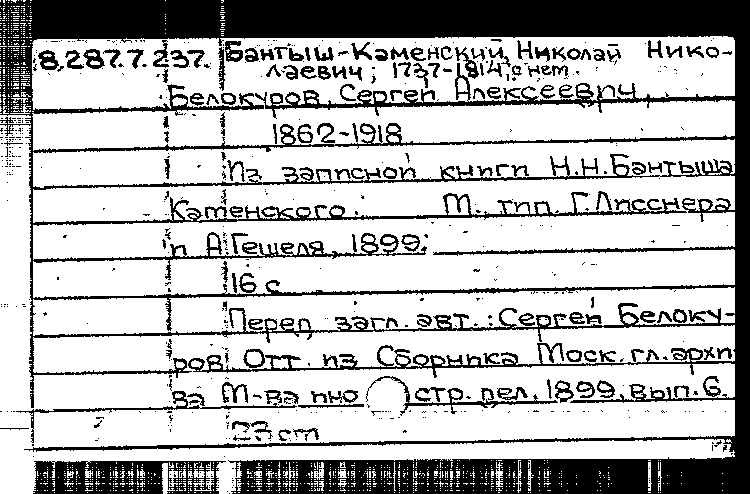 8.287.7.237. Бантыш-Каменский, Николай Нико-
лаевич; 1737-1814; о нем.
Белокуров, Сергей Алексеевич,
1862-1918
Из записной книги Н.Н.Бантыша
Каменского. М., тип. Г.Лисснера
и А.Гешеля, 1899.
16 с
Перед загл. авт.: Сергей Белоку-
ров. Отт. из Сборника Моск. гл. архи
ва М-ва ино стр. дел, 1899, вып. 6.
23 cm